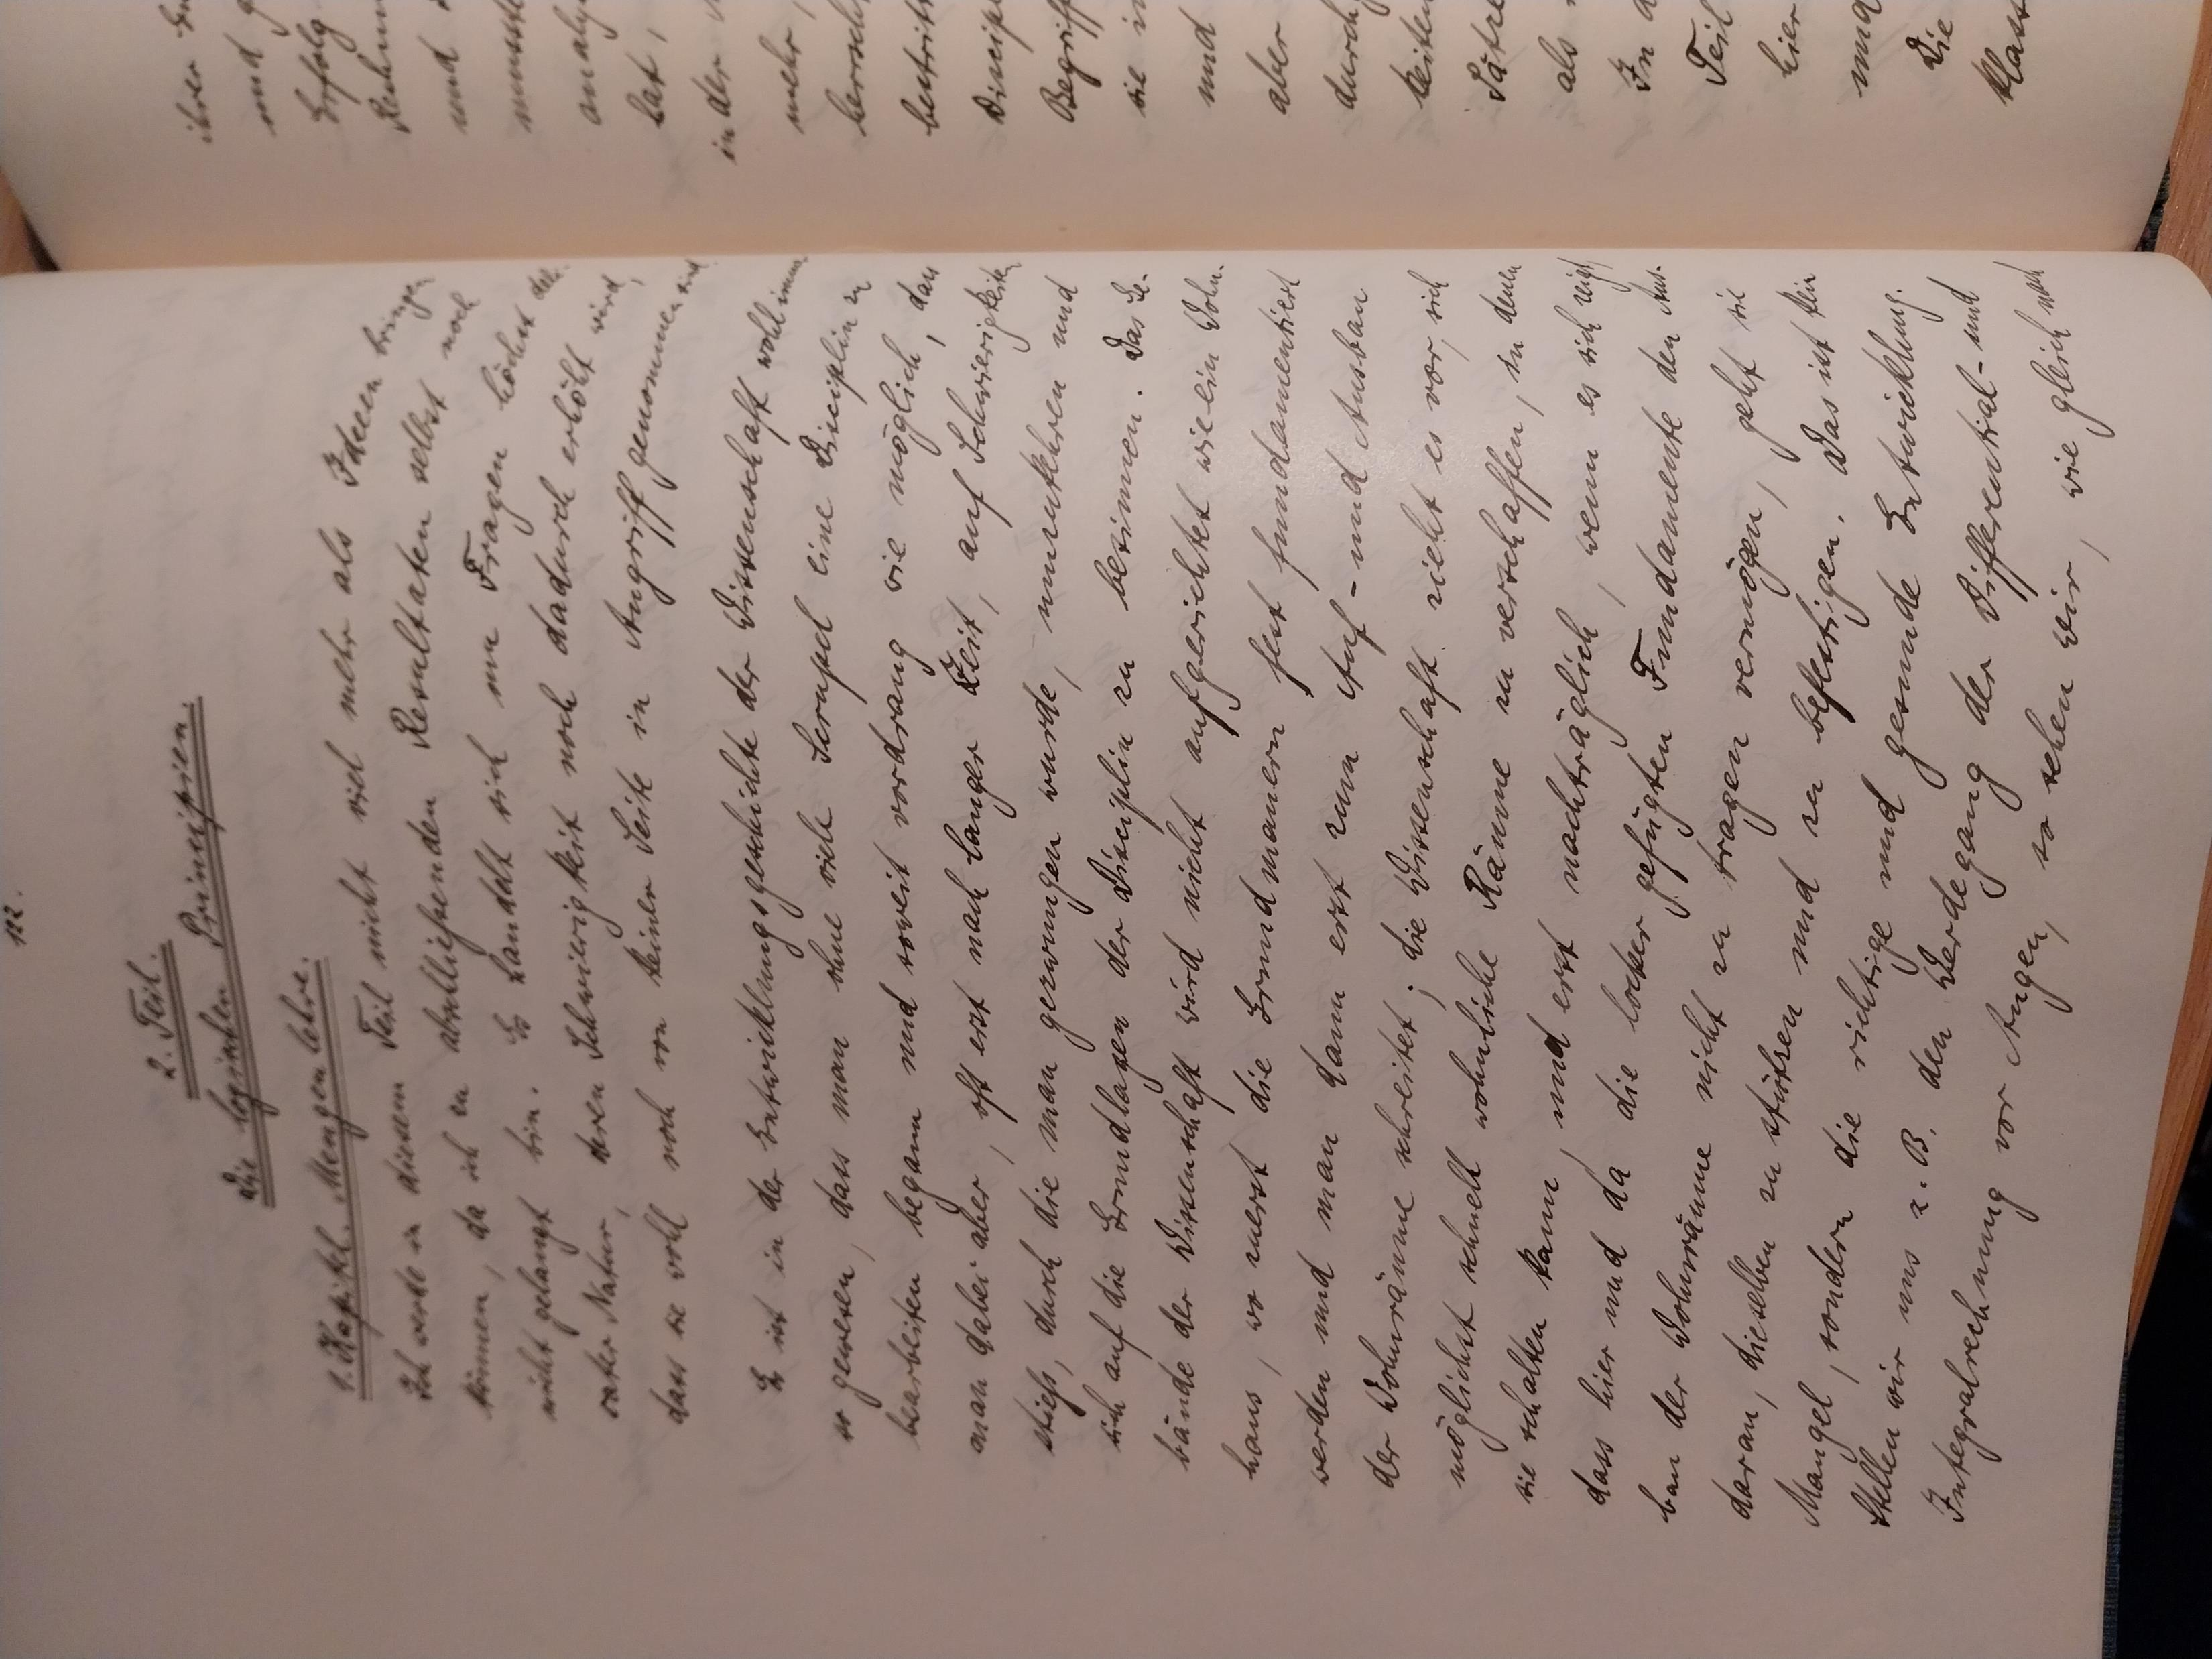 122.
2. Teil.
Die logischen Prinzipien.
1. Kapitel. Mengenlehre.
Ich werde in diesem Teil nicht viel mehr als Ideen bringen
können, da ich zu abschließenden Resultaten selbst noch
nicht gelangt bin. Es handelt sich um Fragen höchst del-
ikater Natur, deren Schwierigkeit noch dadurch erhöht wird,
dass sie wohl noch von keiner Seite in Angriff genommen sind.
Es ist in der Entwicklungsgeschichte der Wissenschaft wohl immer
so gewesen, dass man ohne viele Scrupel eine Disciplin zu
bearbeiten begann und soweit vordrang wie möglich, dass
man dabei aber, oft erst nach langer Zeit, auf Schwierigkeiten
stieß, durch die man gezwungen wurde, umzukehren und
sich auf die Grundlagen der Disciplin zu besinnen. Das Ge-
bäude der Wissenschaft wird nicht aufgerichtet wie ein Wohn-
haus, wo zuerst die Grundmauern fest fundamentiert
werden und man dann erst zum Auf- und Ausbau
der Wohnräume schreitet; die Wissenschaft zieht es vor, sich
möglichst schnell wohnliche Räume zu verschaffen, in denen
sie schalten kann, und erst nachträglich, wenn es sich zeigt,
dass hier und da die locker gefügten Fundamente den Aus-
bau der Wohnräume nicht zu tragen vermögen, geht sie
daran, dieselben zu stützen und zu befestigen. Das ist kein
Mangel, sondern die richtige und gesunde Entwicklung.
Stellen wir uns z. B. den Werdegang der Differential- und
Integralrechnung vor Augen, so sehen wir, wie gleich nach
ihrer
und
Erfolg
und
hat,
in der
mehr,
Begriff
sie in
und
aber
durch
keiten
als
In
Teil
hier
und
Die